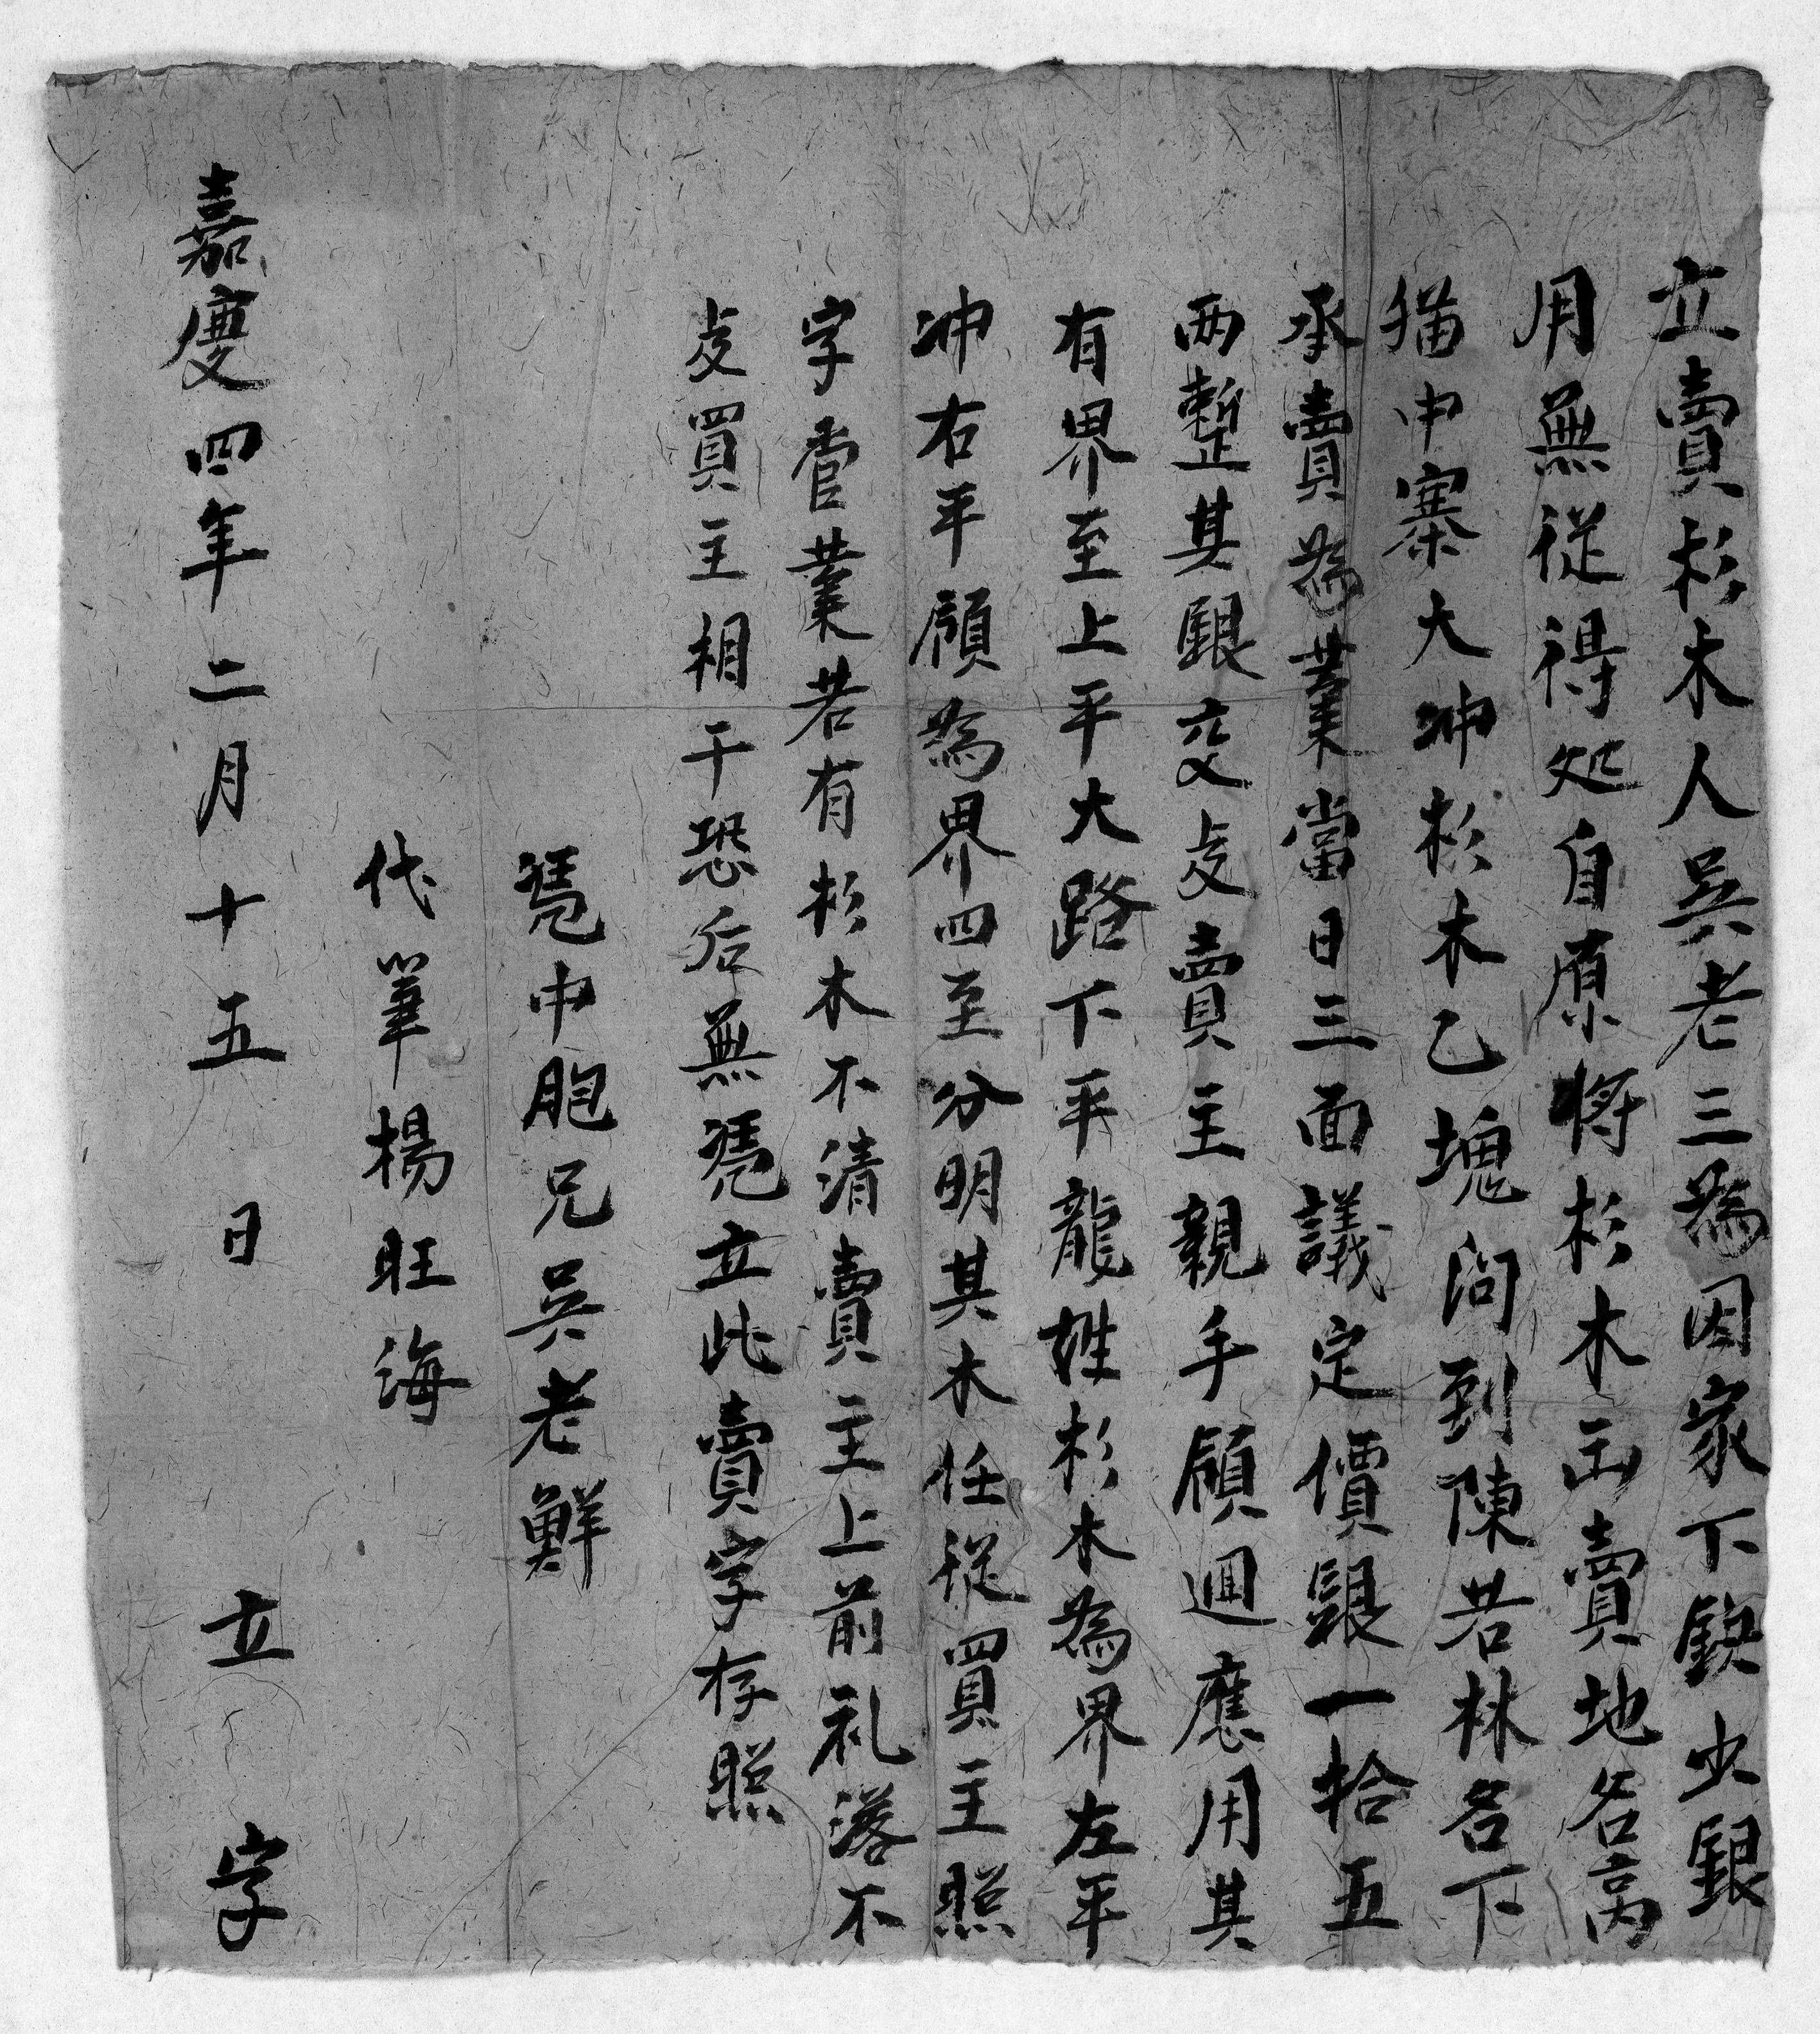 立賣杉木人吳老三為因家下缺少銀
用無從得処自愿將杉木出賣地名高
猫中寨大冲杉木乙塊问到陳若林名下
承賣為業當日三面議定價銀一拾五
两整其銀交足賣主親手領迴應用其
有界至上平大路下平龍姓杉木為界左平
冲右平嶺為界四至分明其木任從買主照
字管業若有杉木不清賣主上前礼落不
干買主相干恐后無凭立此賣字存照
凭中胞兄吳老鮮
代筆楊旺海
嘉慶四年二月十五日 立 字